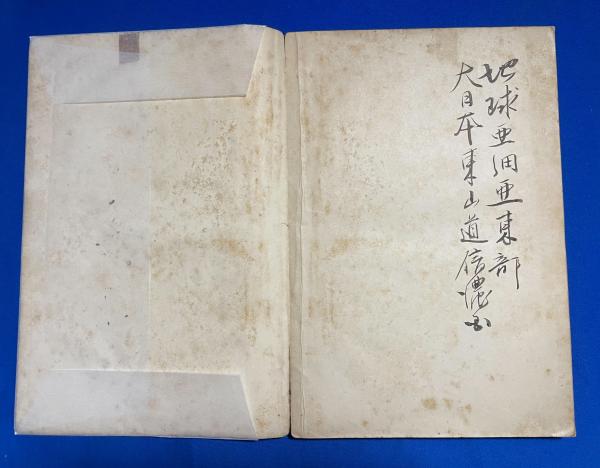 地球亜細亜東部
大日本東山道信濃国